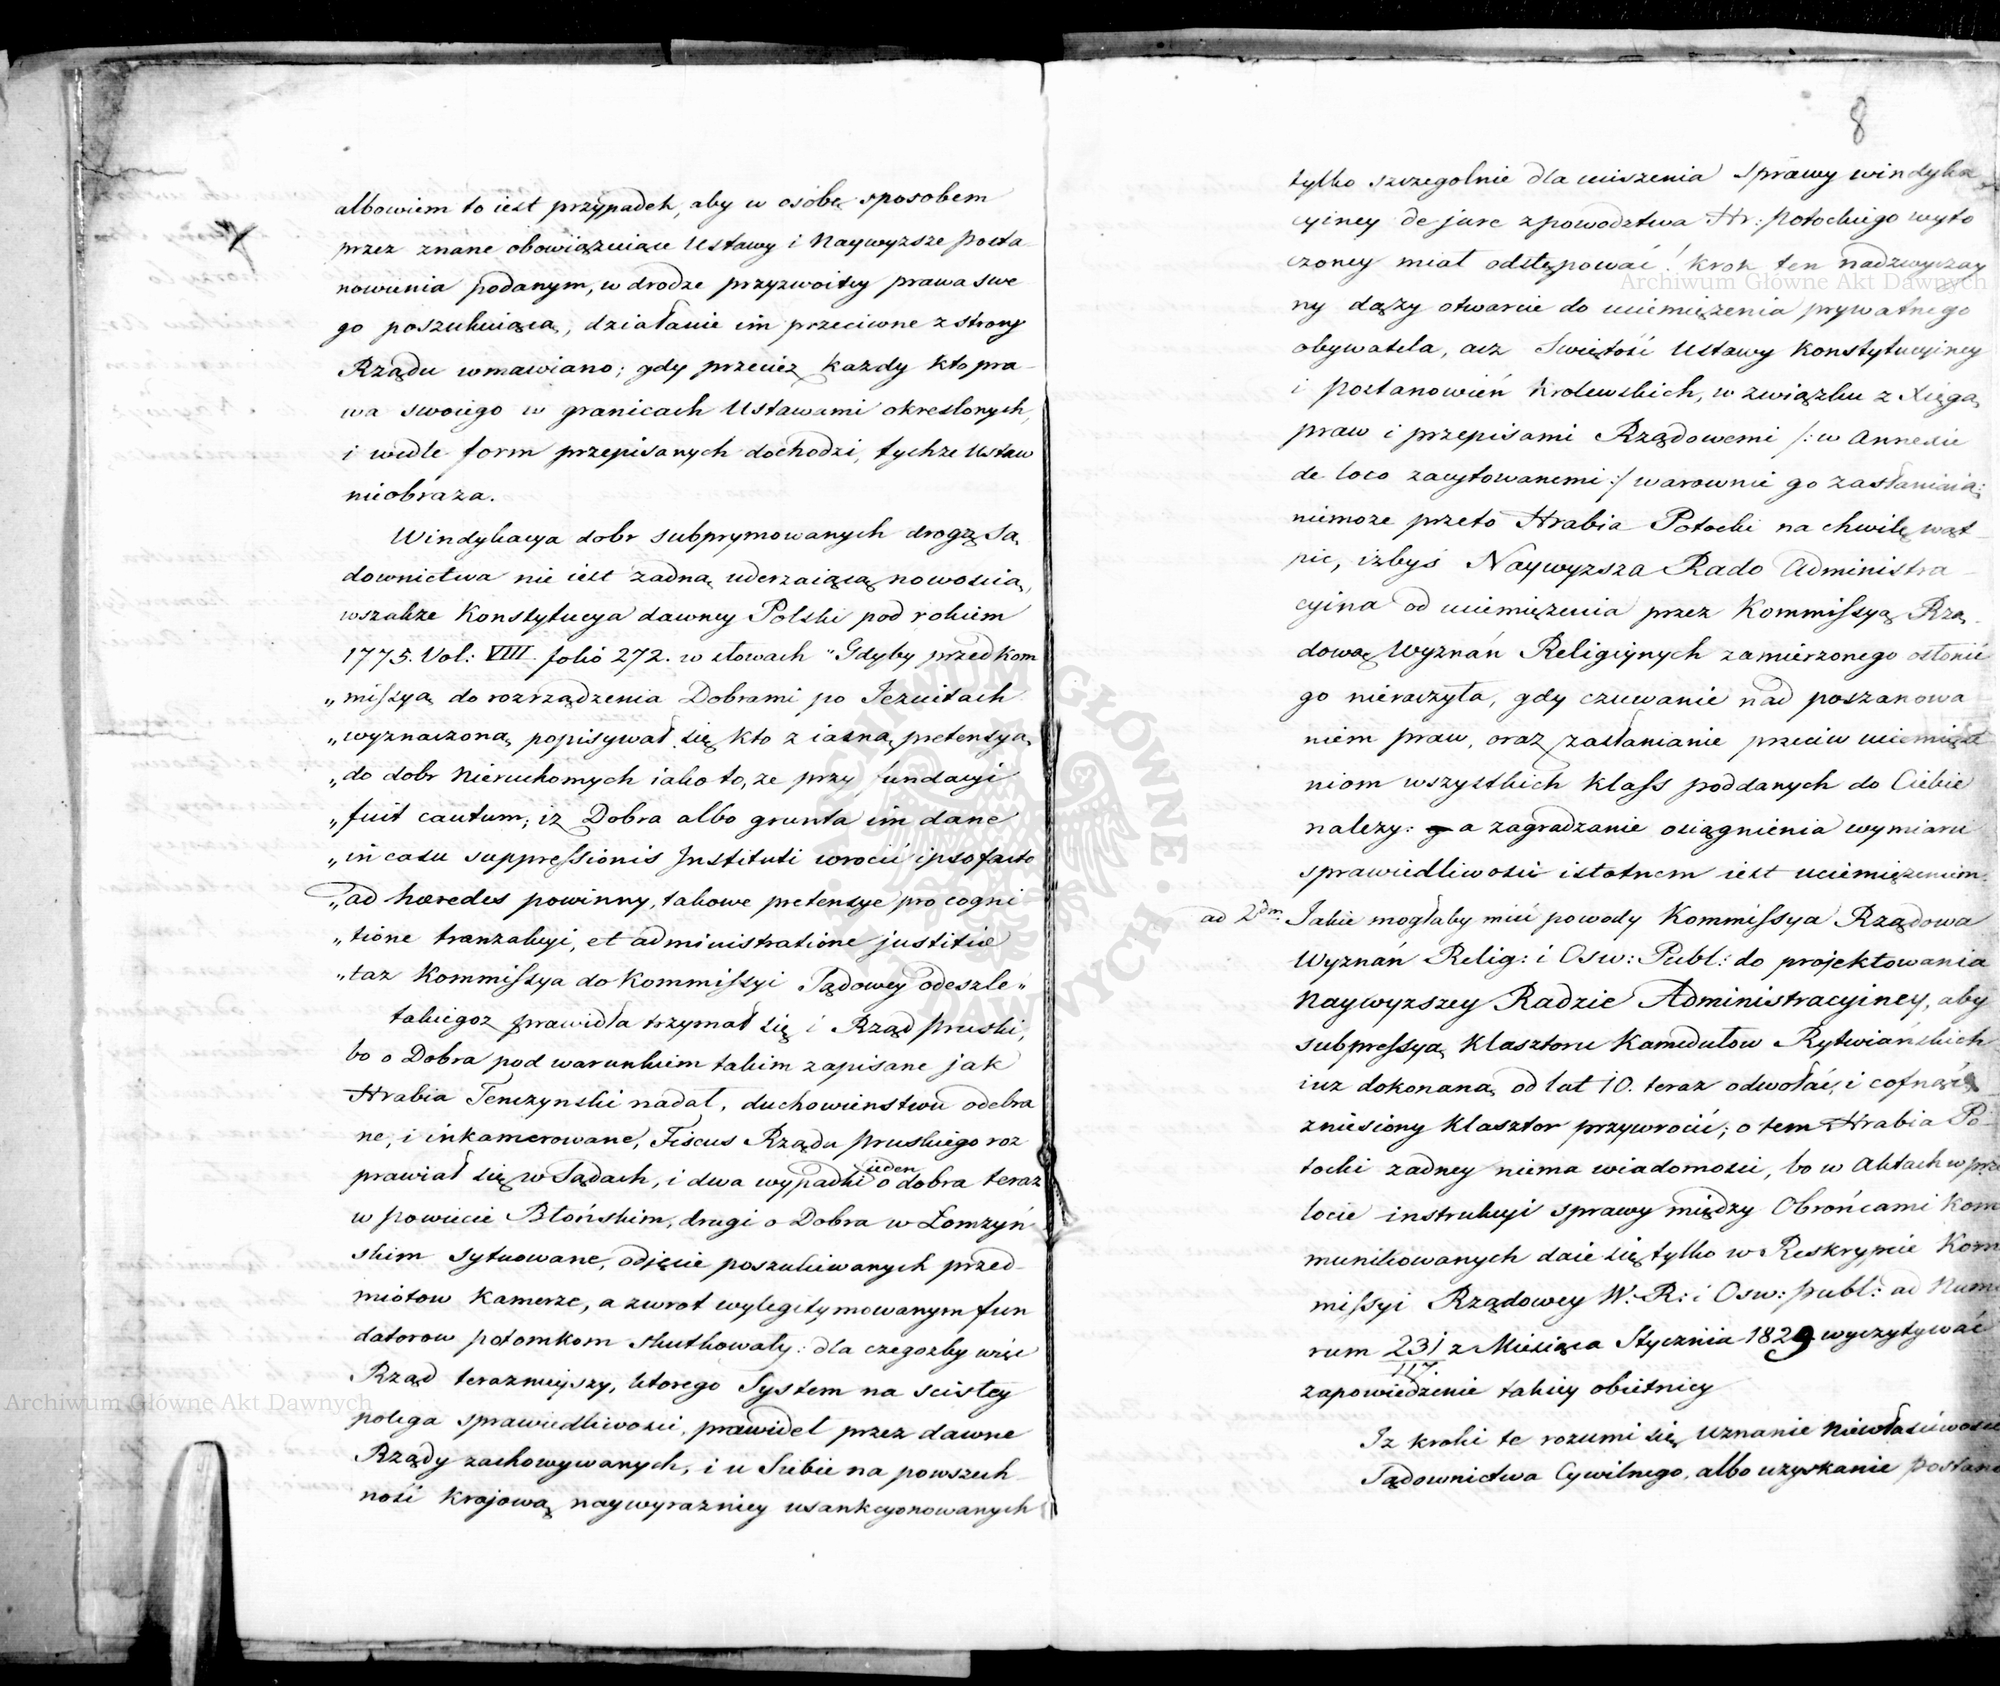 albowiem to iest przypadek, aby w osobę sposobem
przez znane obowiązuiące Ustawy i Naywyzsze posta
nowienia podanym, w drodze przyzwoitey prawa swe
go poszukuiącą, działanie im przeciwne z strony
Rządu wmawiano; gdy przecież kazdy kto pra-
wa swoiego w granicach Ustawami okreslonych,
i wedle form przepisanych dochodzi, tychze Ustaw
nieobraza.
Windykacya dobr subprymowanych drogą Są
downictwa nie iest zadną uderzaiącą nowoscią,
wszakze Konstytucya dawney Polski pod rokiem
1775. Vol: VIII. folio 272. w słowach "Gdyby przed kom
„missyą do rozrządzenia Dobrami po Jezuitach
„wyznaczoną popisywał się kto z iasną pretensyą
„do dobr Nieruchomych iako to, ze przy fundacyi
„fuit cautum, iz Dobra albo grunta im dane
„in casu suppressionis Instituti wrocić ipso facto
„ad hæredes powinny, takowe pretensye pro cogni
„tione tranzakcyi, et administratione justitiæ
„taz Kommissya do Kommissyi Sądowey odeszle"
takiegoz prawidła trzymał się i Rząd pruski,
bo o Dobra pod warunkiem takim zapisane jak
Hrabia Tenczynski nadał, duchowienstwu odebra
ne, i inkamerowane, Fiscus Rządu pruskiego roz
prawiał się w Sądach, i dwa wypadki ieden o dobra teraz
w powiecie Błońskim, drugi o Dobra w Łomzyń
skim sytuowane, odjęcie poszukiwanych przed-
miotow Kamerze, a zwrot wylegitymowanym fun
datorow potomkom skutkowały: dla czegozby więc
Rząd terazniejszy, ktorego System na scisłey
polega sprawiedliwosci, prawideł przez dawne
Rządy zachowywanych, i u Siebie na powszech-
ność krajową naywyrazniey usankcyonowanych
8
tylko szczegolnie dla uciszenia sprawy windyka
cyiney de jure z powodztwa Hr: Potockiego wyto
czoney miał odstępować! krok ten nadzwyczay
ny dązy otwarcie do uciemięzenia prywatnego
obywatela, acz Swiętość Ustawy Konstytucyiney
i postanowień Krolewskich, w związku z Xięgą
praw i przepisami Rządowemi /: w Annexie
de loco zacytowanemi :/ warownie go zasłaniaią:
niemoze przeto Hrabia Potocki na chwilę wąt-
pić, izbyś Naywyzsza Rado Administra-
cyina od uciemięzenia przez Kommissyą Rzą-
dową Wyznań Religiynych zamierzonego osłonić
go nieraczyła, gdy czuwanie nad poszanowa
niem praw, oraz zasłanianie przeciw uciemięze
niom wszystkich klass poddanych do Ciebie
nalezy: a zagradzanie osiągnienia wymiaru
sprawiedliwosci istotnem iest uciemięzeniem.
ad 2dm. Jakie mogłaby mieć powody Kommissya Rządowa
Wyznań Relig: i Osw: Publ: do projektowania
Naywyzszey Radzie Administracyiney, aby
subpressyą Klasztoru Kamedułow Rytwiańskich
iuz dokonaną od lat 10. teraz odwołać, i cofnąć
zniesiony Klasztor przywrocić; o tem Hrabia Po-
tocki zadney niema wiadomosci, bo w Aktach w prze
locie instrukcyi sprawy między Obrońcami Kom
munikowanych daie się tylko w Reskrypcie Kom
missyi Rządowey W: R: i Osw: publ: ad Nume
rum 231/117 z Miesiąca Stycznia 1829 wyczytywać
zapowiedzenie takiey obietnicy
Iz kroki te rozumi się, uznanie niewłasciwosci
Sądownictwa Cywilnego, albo uzyskanie postano
Archiwum Główne Akt Dawnych
Archiwum Główne Akt Dawnych
ARCHIWUM GŁÓWNE AKT DAWNYCH